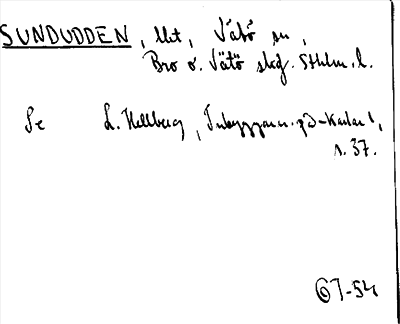 SUNDUDDEN, lht, Vätö sn,
Bro o. Vätö skg. Sthlm. l.
Se L. Hellberg, Inbyggarn. på -karlar 1,
s. 37.
67-54